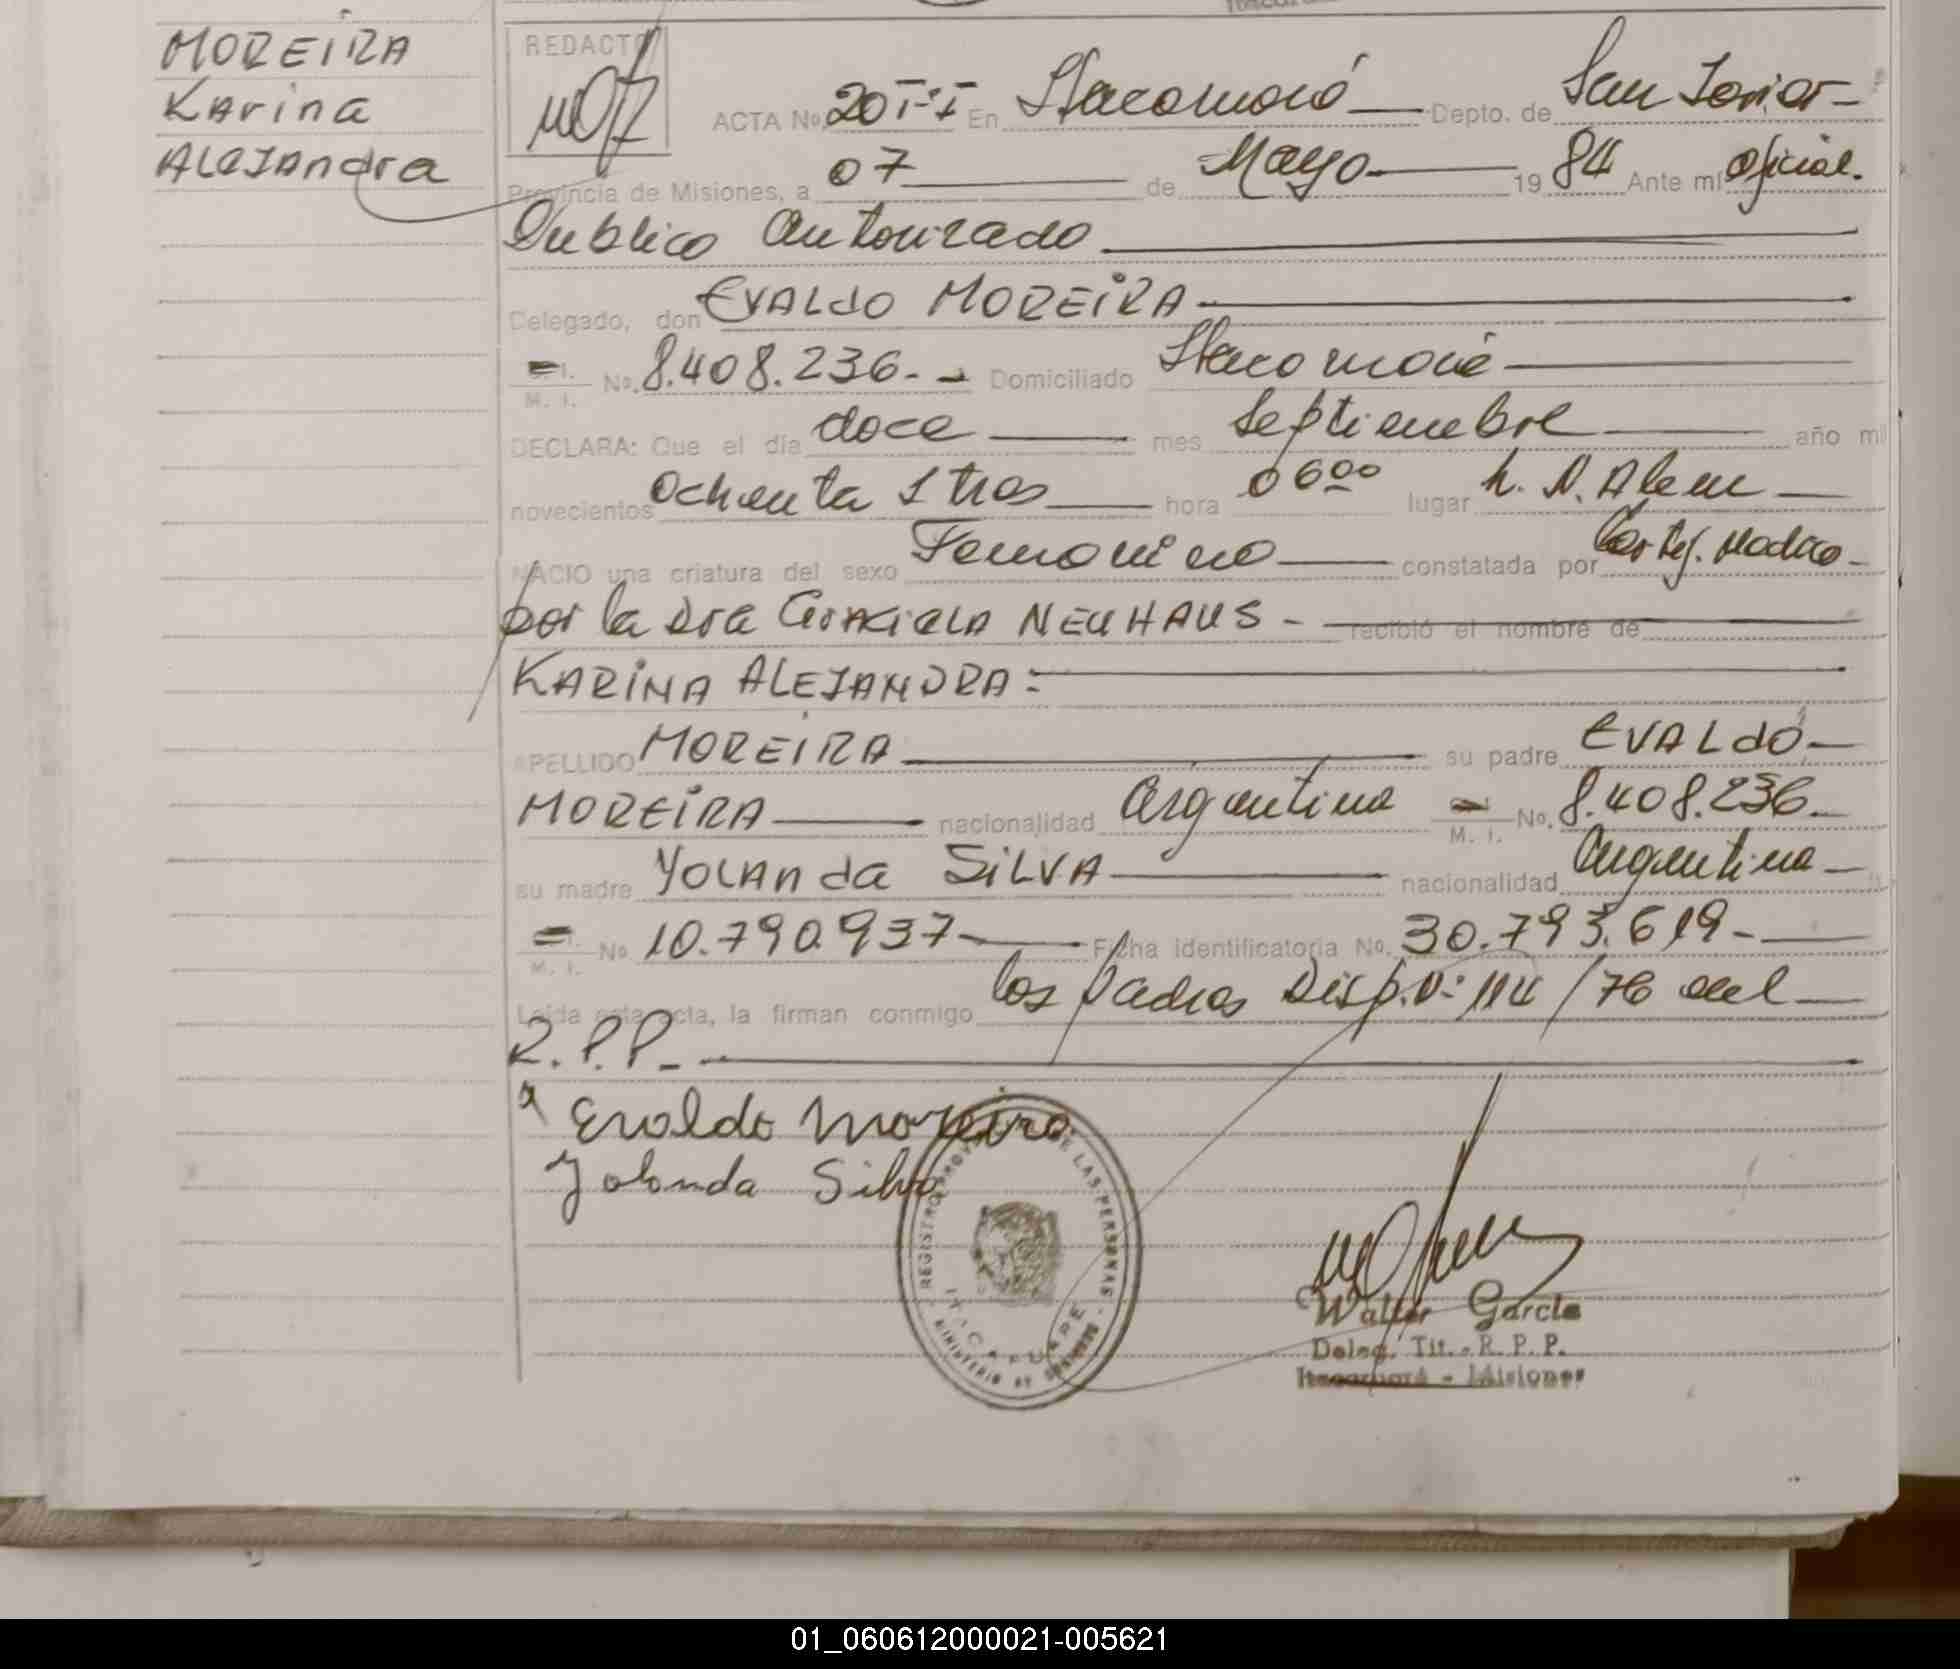 MOREIRA
Karina
ALEJAndra
REDACTO
ACTA No. 20 T-I En Itacaruaré Depto. de San Javier
Provincia de Misiones, a 07 de Mayo 19 84 Ante mi Oficial.
Publico Autorizado
Delegado, don EVALdO MOREIRA
M. I. No. 8.408.236. Domiciliado Itacaruaré
DECLARA: Que el día doce mes septiembre año mil
novecientos ochenta y tres hora 06 00 lugar L. N. Alem
NACIO una criatura del sexo Femenino constatada por Certif. Medico
por la Dra GraciELA NEUHAUS - recibió el nombre de
KARINA ALEJANDRA:
APELLIDO MOREIRA su padre EVALdO
MOREIRA nacionalidad Argentina M. I. No. 8.408.236.
su madre YOLAnda SiLVA nacionalidad Argentina
M. I. No 10.790.937 Ficha identificatoria No. 30.793.619-
Leída esta acta, la firman conmigo los padres Disp. N: 114/76 del
R.P.P.
x Evaldo Moreira
Yolanda Silva
REGISTRO PROV DE LAS PERSONAS
ITACARUARE
MINISTERIO DE GOBIERNO
Walter Garcia
Deleg. Tit. - R. P. P.
Itacaruaré - Misiones
01_060612000021-005621